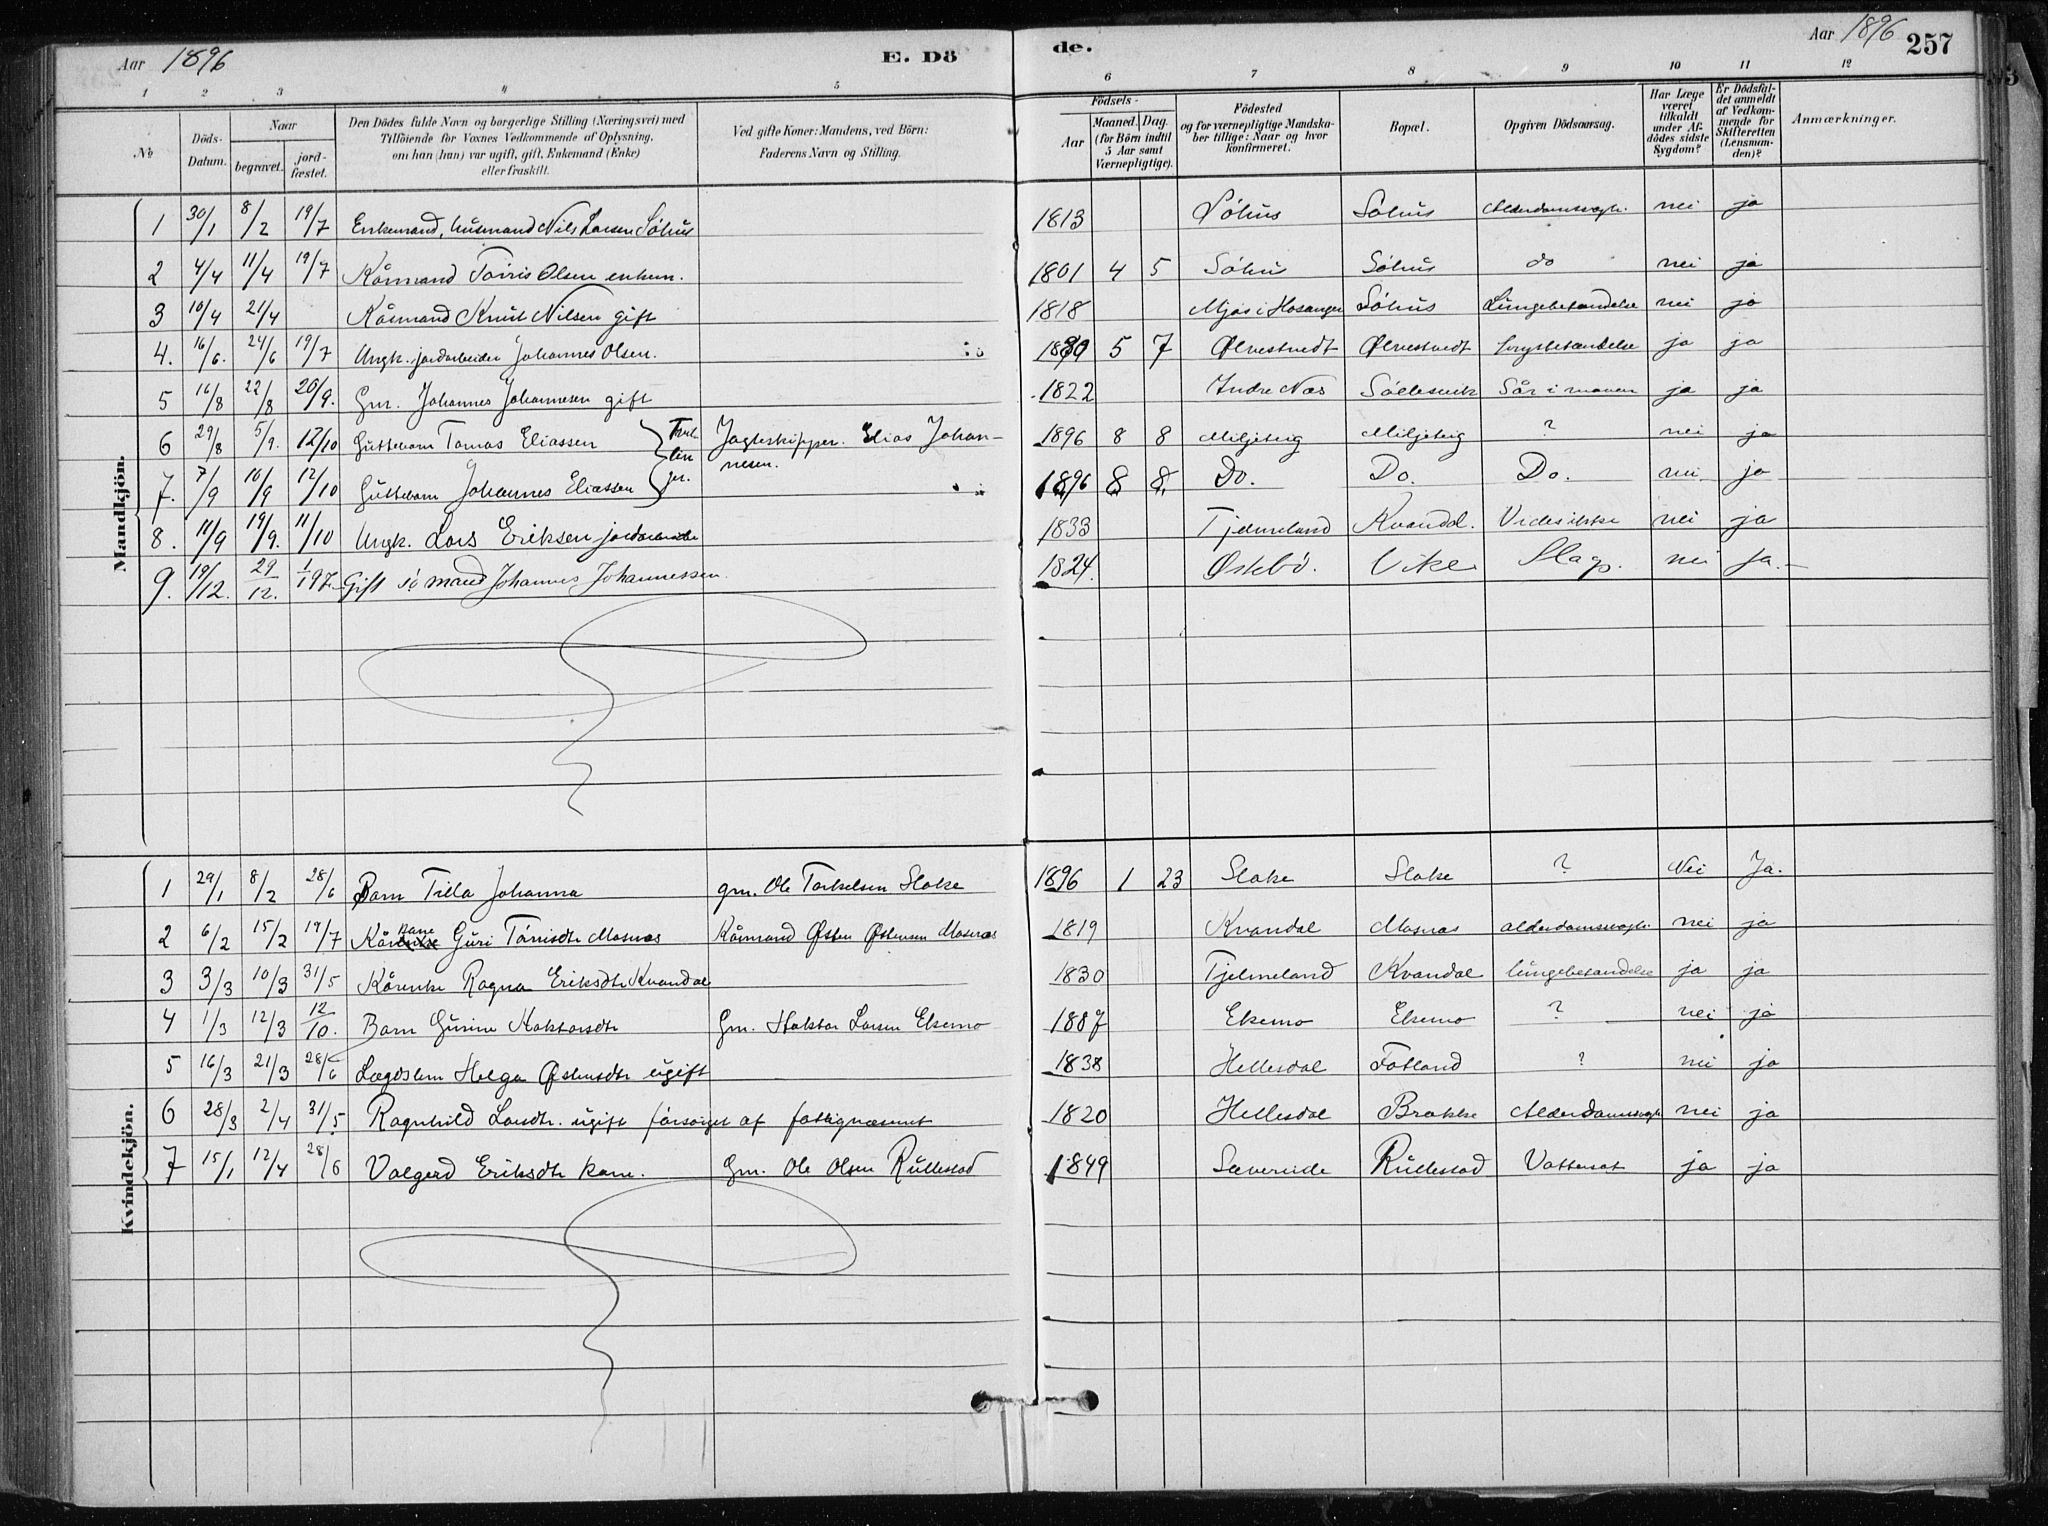 Aar 1896 E. Dö
de. Aar 1896 257
1 2 3 4 5 6 7 8 9 10 11 12
No
Döds-Datum.
Naar
begravet.
jord-fæstet.
Den Dödes fulde Navn og borgerlige Stilling (Næringsvei) med
Tilföiende for Voxnes Vedkommende af Oplysning,
om han (hun) var ugift, gift, Enkemand (Enke)
eller fraskilt.
Ved gifte Koner: Mandens, ved Börn:
Faderens Navn og Stilling.
Födsels-
Aar
Maaned. Dag.
(for Börn indtil
5 Aar samt
Værnepligtige).
Födested
og for værnepligtige Mandska-
ber tillige: Naar og hvor
konfirmeret.
Bopæl.
Opgiven Dödsaarsag.
Har Læge
været
tilkaldt
under Af-
dödes sidste
Sygdom?
Er Dödsfal-
det anmeldt
af Vedkom-
mende for
Skifteretten
(Lensman-
den)?
Anmærkninger.
Mandkjön.
1 30/1 8/2 19/7 Enkemand, husmand Nils Larsen Söhus 1813 Söhus Söhus Alderdomssvagh. nei ja
2 4/4 11/4 19/7 Kårmand Torris Olsen enkem. 1801 4 5 Söhus Söhus do nei ja
3 10/4 21/4 Kårmand Knut Nilsen gift 1818 Mjøs i Hosanger Söhus Lungebetændelse nei ja
4. 16/6. 24/6 19/7 Ungk. jordarbeider Johannes Olsen. 5 7 Ølvestvedt Ølvestvedt brystbetændelse ja ja
5 16/8 22/8 20/9. Gm. Johannes Johannesen gift 1822 Indre Næs Sår i maven ja ja
6 29/8 5/9. 12/10 Guttebarn Tomas Eliassen Tvil- Jagteskipper. Elias Johan- 1896 8 8 Miljeteig Miljeteig ? nei ja
lin ger. nesen.
7. 7/9 10/9 12/10 Guttebarn Johannes Eliassen 1896 8 8 Do. Do. Do. nei ja
8. 11/9 19/9. 11/10 Ungk. Lars Eriksen 1833 Tjelmeland Kvandal. nei ja
9. 19/12. 29/12. 1/1 97. Gift mand Johannes Johannessen. 1824. Østebö. Vike Slag. nei Ja.
Kvindekjön.
1 29/1 8/2 28/6 Barn Tilla Johanna gm. Ole Torkelsen Stoke 1896 1 23 Stoke Stoke ? Nei Ja.
2 6/2 15/2 19/7 Kårkone Guri Tórrisdtr Mosnes Kårmand Østen Østensen Mosnes 1819 Kvandal Mosnes alderdomssvagh. nei ja
3 3/3 10/3 31/5 Kårenke Ragna Eriksdtr Kvandal 1830 Tjelmeland Kvandal lungebetændelse ja ja
4 1/3 12/3 12/10. Barn Gurine Haktorsdtr Gm. Haktor Larsen Ekemo 1887 Ekemo Ekemo ? nei ja
5 16/3 21/3 28/6 Lægdslem Helga Østensdtr ugift 1838 Hellesdal Fatland ? nei ja
6 28/3 2/4 31/5 Ragnhild Larsdtr. ugift forsörget af fattigvæsenet 1820 Hellesdal Brakke Alderdomssvagh nei ja
7 15/1 12/4 28/6 Valgerd Eriksdtr kone. Gm. Ole Olsen Rullestad 1849 Sævereide Rullestad Vattersot ja ja